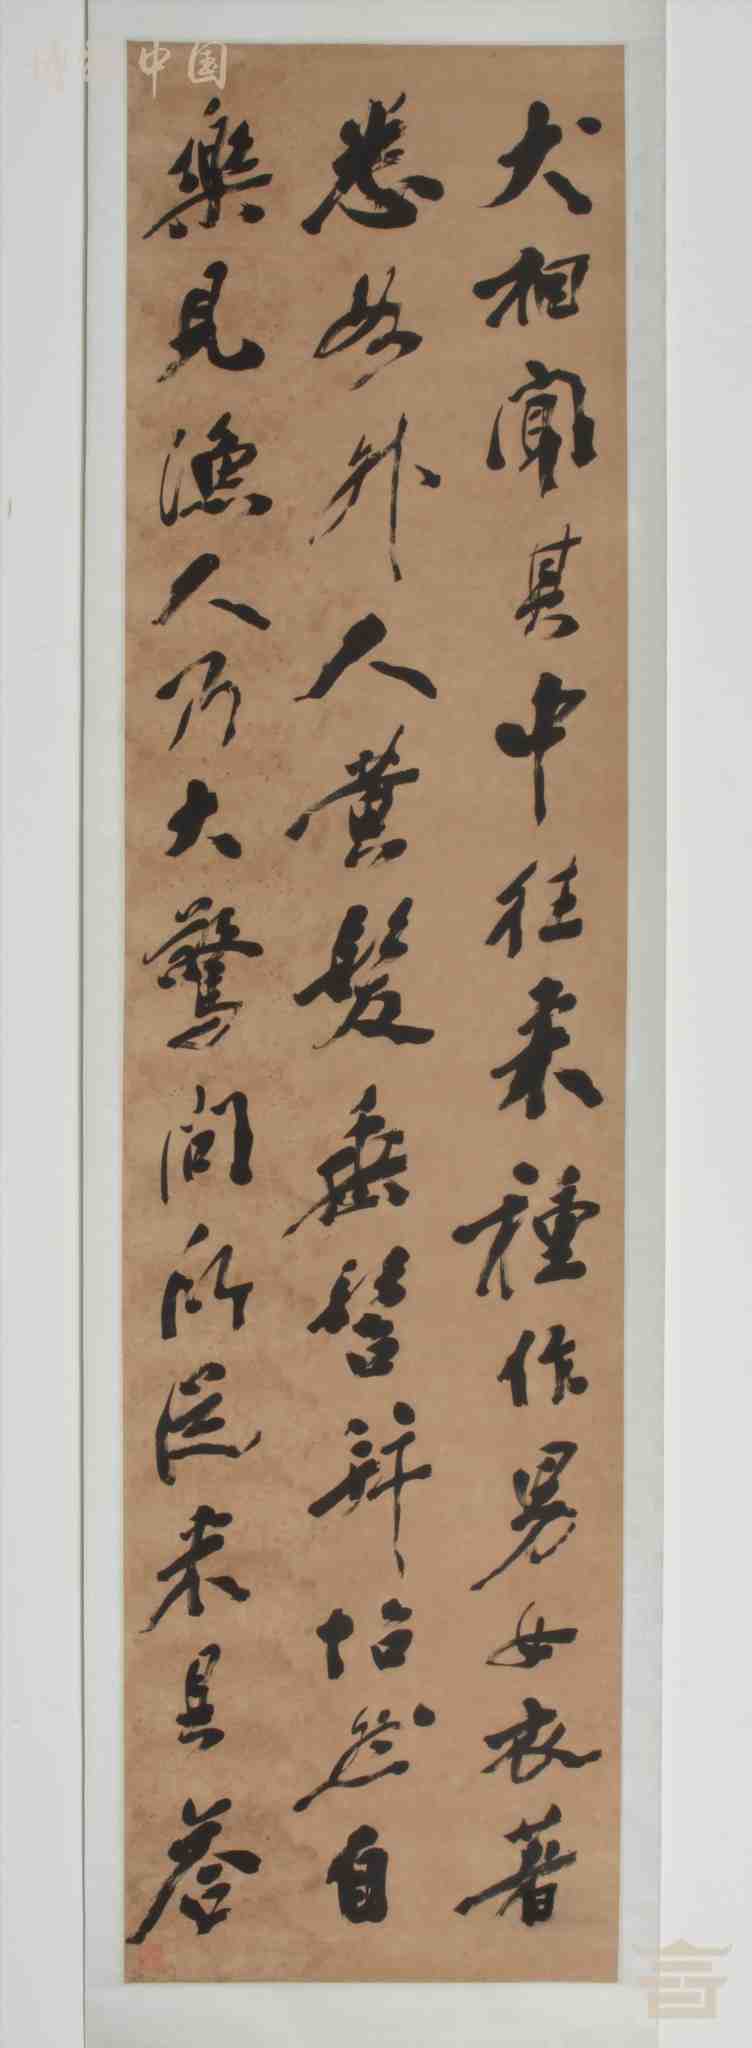 犬相聞其中往来種作男女衣著
悉如外人黄髮垂髫并怡然自
樂見漁人乃大驚問所從来具答
中国